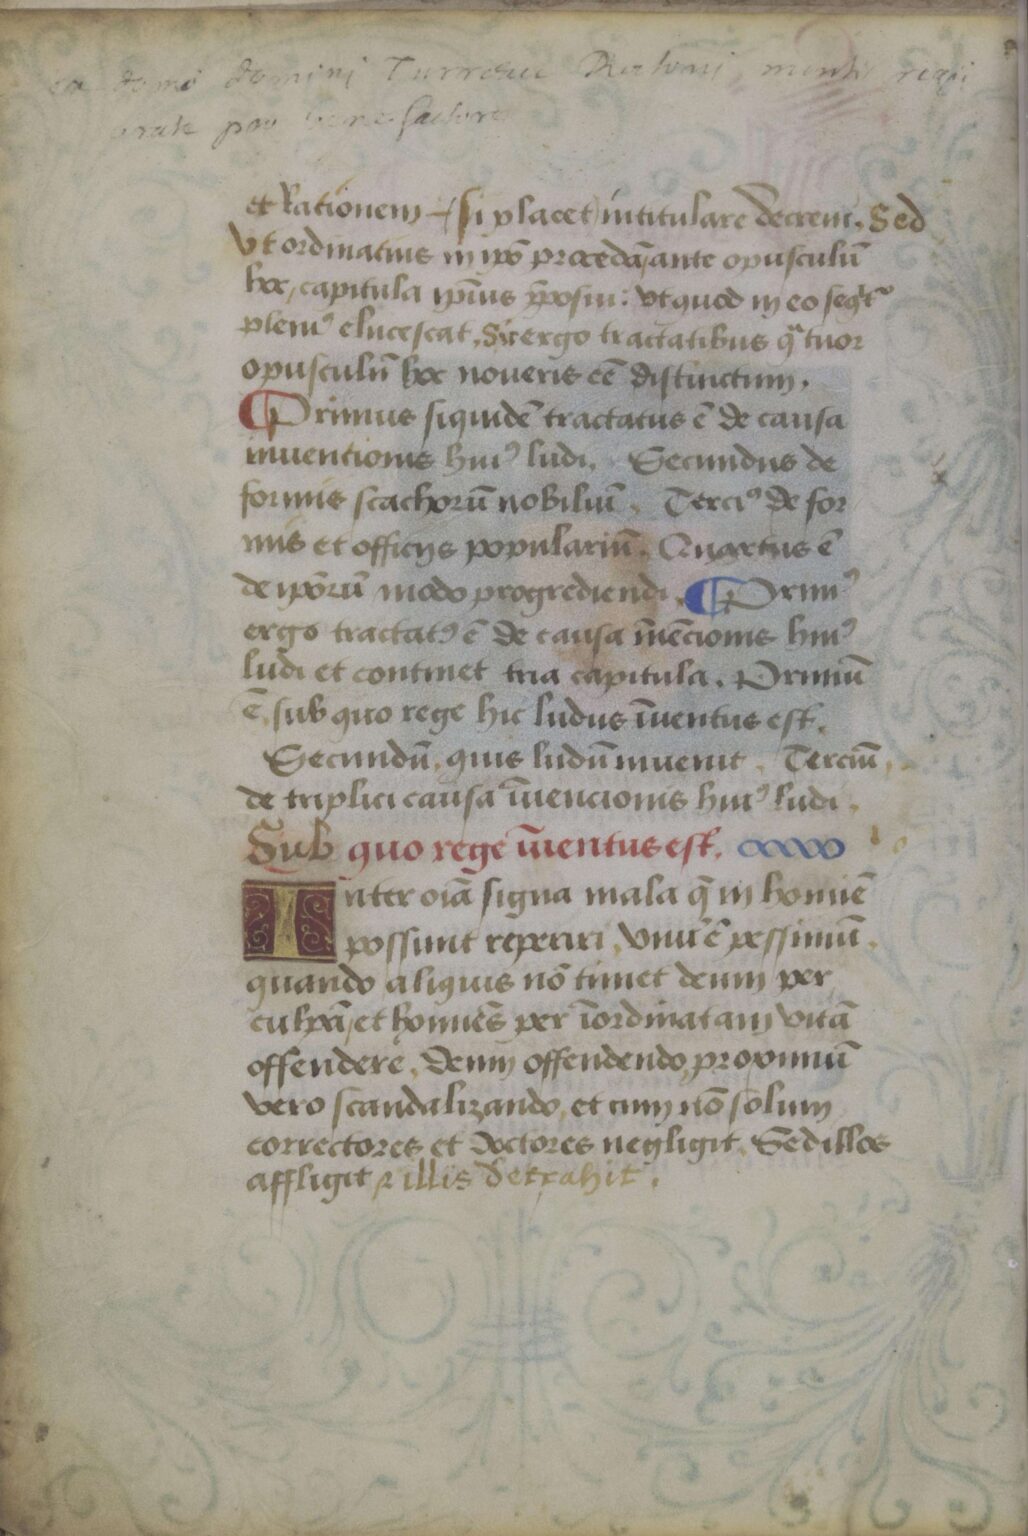 domini
orate pro benefactore
et Rationem (si placet) intitulare decreui. Sed
Vt ordinatius in ip̄o procedā, ante opusculū
hoc, capitula ip̄ius p̄posui: Vt quod in eo seqͥtᷣ
pleniꝰ elucescat. Sic ergo tractatibus qͣtuor
opusculū hoc noueris eē distinctum.
Primus siquidē tractatus ē de causa
inuentionis huiꝰ ludi. Secundus de
formis scachorū nobiliū. Terciꝰ de for
mis et officijs populariū. Quartus ē
de ip̄orū modo progrediendi. Primꝰ
ergo tractatꝰ ē de causa īuēcionis huiꝰ
ludi et continet tria capitula. Primum̄
ē, sub quo rege hic ludus īuentus est.
Secundū, quis ludū inuenit. Tercium̄,
de triplici causa īuencionis huiꝰ ludi.
Sub quo rege īuentus est.
Inter oīa signa mala q̄ in hominē
possunt reperiri, vnū ē pessimum̄.
quando aliquis nō timet deum per
culpā, et homīes per īordinatam vitā
offendere, deum offendendo, proximum̄
vero scandalizando, et cum nō solum
correctores et doctores negligit. Sed illos
affligit ⁊ illis detrahit.